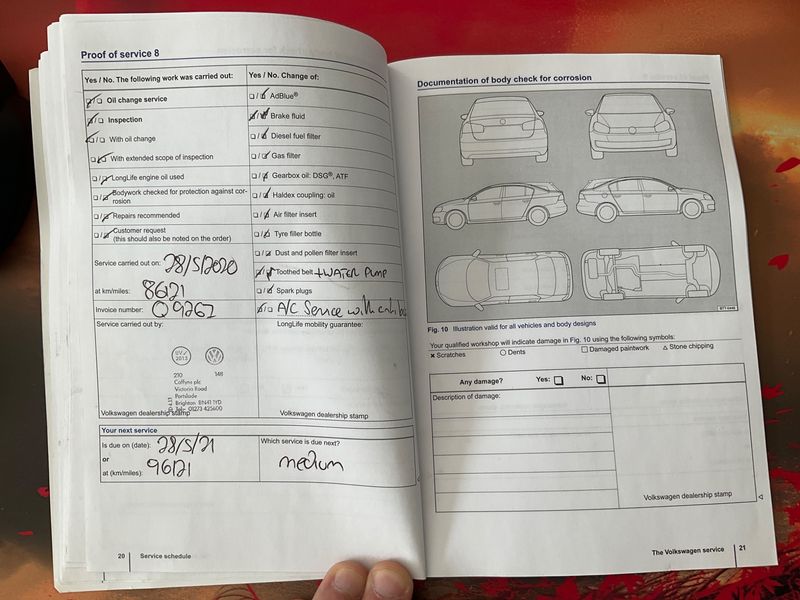 Proof of service 8
Yes / No. The following work was carried out:
Oil change service
Inspection
With oil change
With extended scope of inspection
LongLife engine oil used
Bodywork checked for protection against cor-
rosion
Repairs recommended
Customer request
(this should also be noted on the order)
Service carried out on: 28/5/2020
at km/miles: 86121
Invoice number: 09267
Service carried out by:
210 148
Caffyns plc
Victoria Road
Portslade
Brighton BN41 1YD
Tel: 01273 425600
Volkswagen dealership stamp
Yes / No. Change of:
AdBlue®
Brake fluid
Diesel fuel filter
Gas filter
Gearbox oil: DSG®, ATF
Haldex coupling: oil
Air filter insert
Tyre filler bottle
Dust and pollen filter insert
Toothed belt +WATER PUMP
Spark plugs
A/C Service with
LongLife mobility guarantee:
Volkswagen dealership stamp
Your next service
Is due on (date): 28/5/21
or
at (km/miles): 96121
Which service is due next?
medium
20 Service schedule
Documentation of body check for corrosion
Fig. 10 Illustration valid for all vehicles and body designs
Your qualified workshop will indicate damage in Fig. 10 using the following symbols:
× Scratches ○ Dents □ Damaged paintwork △ Stone chipping
Any damage? Yes: □ No: □
Description of damage:
Volkswagen dealership stamp
The Volkswagen service 21